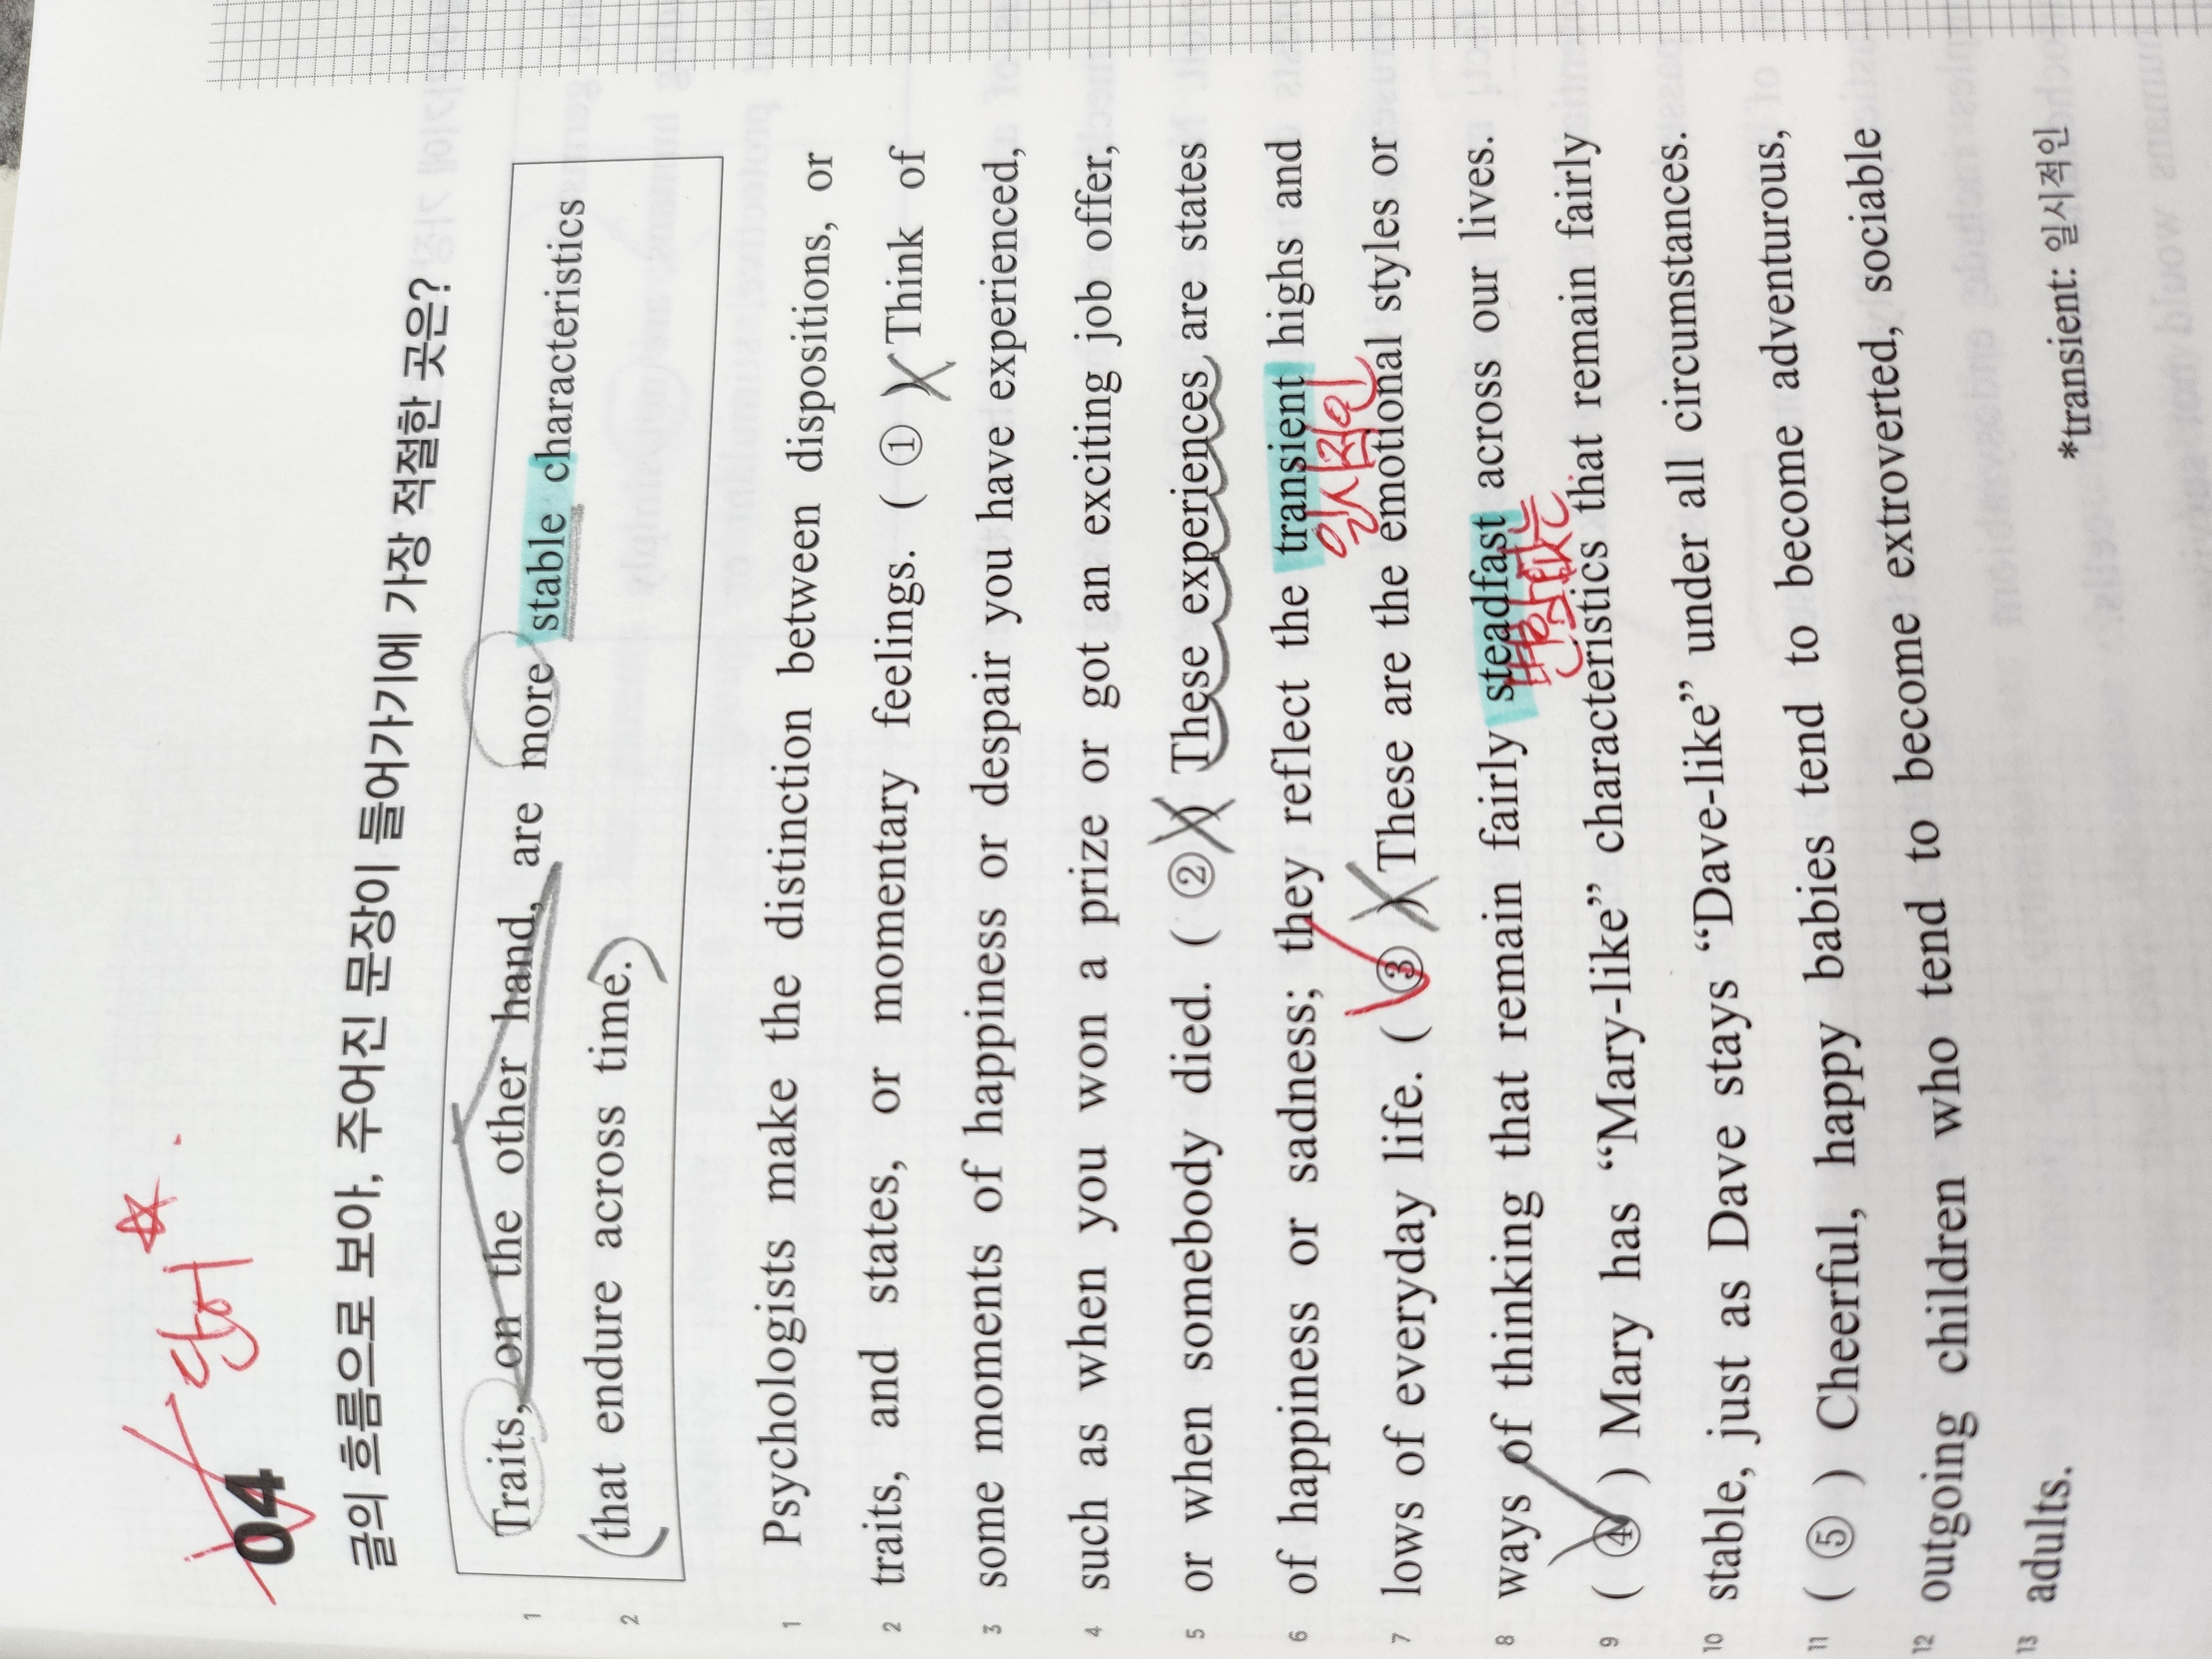 04
단어 ☆
글의 흐름으로 보아, 주어진 문장이 들어가기에 가장 적절한 곳은?
1 Traits, on the other hand, are more stable characteristics
2 that endure across time.
1 Psychologists make the distinction between dispositions, or
2 traits, and states, or momentary feelings. ( ① ) Think of
3 some moments of happiness or despair you have experienced,
4 such as when you won a prize or got an exciting job offer,
5 or when somebody died. ( ② ) These experiences are states
6 of happiness or sadness; they reflect the transient highs and
일시적인
7 lows of everyday life. ( ③ ) These are the emotional styles or
8 ways of thinking that remain fairly steadfast across our lives.
변함없는
9 ( ④ ) Mary has “Mary-like” characteristics that remain fairly
10 stable, just as Dave stays “Dave-like” under all circumstances.
11 ( ⑤ ) Cheerful, happy babies tend to become adventurous,
12 outgoing children who tend to become extroverted, sociable
13 adults.
*transient: 일시적인